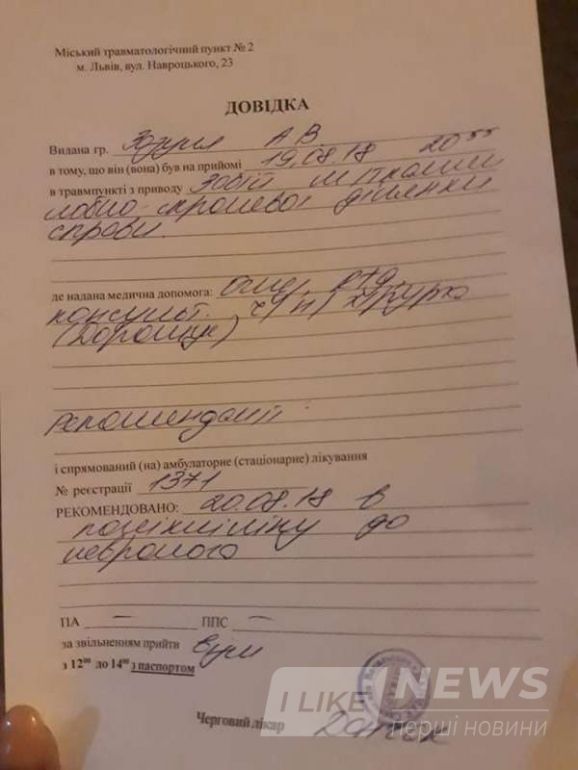 Міський травматологічний пункт № 2
м. Львів, вул. Навроцького, 23
ДОВІДКА
Видана гр. А В
в тому, що він (вона) був на прийомі 19.08.18 20⁵⁵
в травмпункті з приводу Забій м'яких тканин
лобно-скроневої ділянки
справа.
де надана медична допомога: огляд, р-гр,
консульт. ч/п н/хірурга
(Дорощук)
Рекомендації:
і спрямований (на) амбулаторне (стаціонарне) лікування
№ реєстрації 1371
РЕКОМЕНДОВАНО: 20.08.18 в
поліклініку до
невролога
ПА — ППС —
за звільненням прийти
з 12⁰⁰ до 14⁰⁰ з паспортом
Черговий лікар
I LIKE NEWS
перші новини